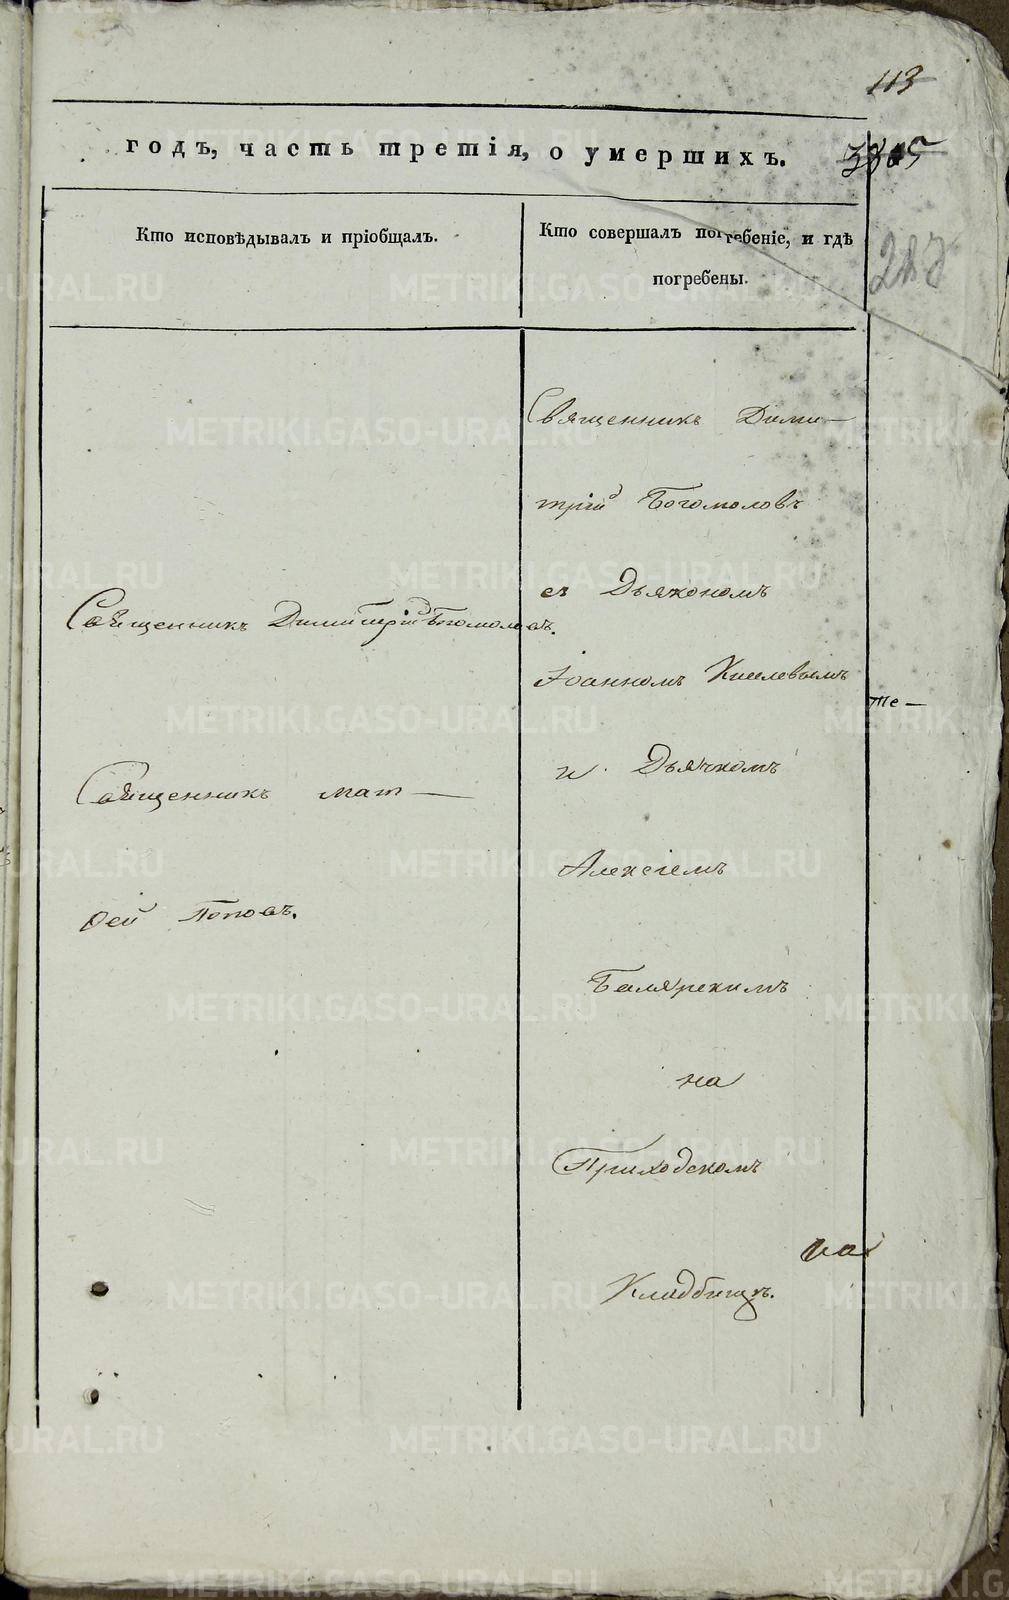 113
годъ, часть третія, о умершихъ.
3805
287
Кто исповѣдывалъ и пріобщалъ.
Кто совершалъ погребеніе, и гдѣ
погребены.
Священникъ Димитрій Богомоловъ.
Священникъ Мат-
ѳей Поповъ.
Священникъ Дими-
трій Богомоловъ
съ Дьякономъ
Іоанномъ Киселевымъ
и Дьячкомъ
Алексіемъ
Балярскимъ
на
Приходскомъ
Кладбищѣ.
те-
на
METRIKI.GASO-URAL.RU